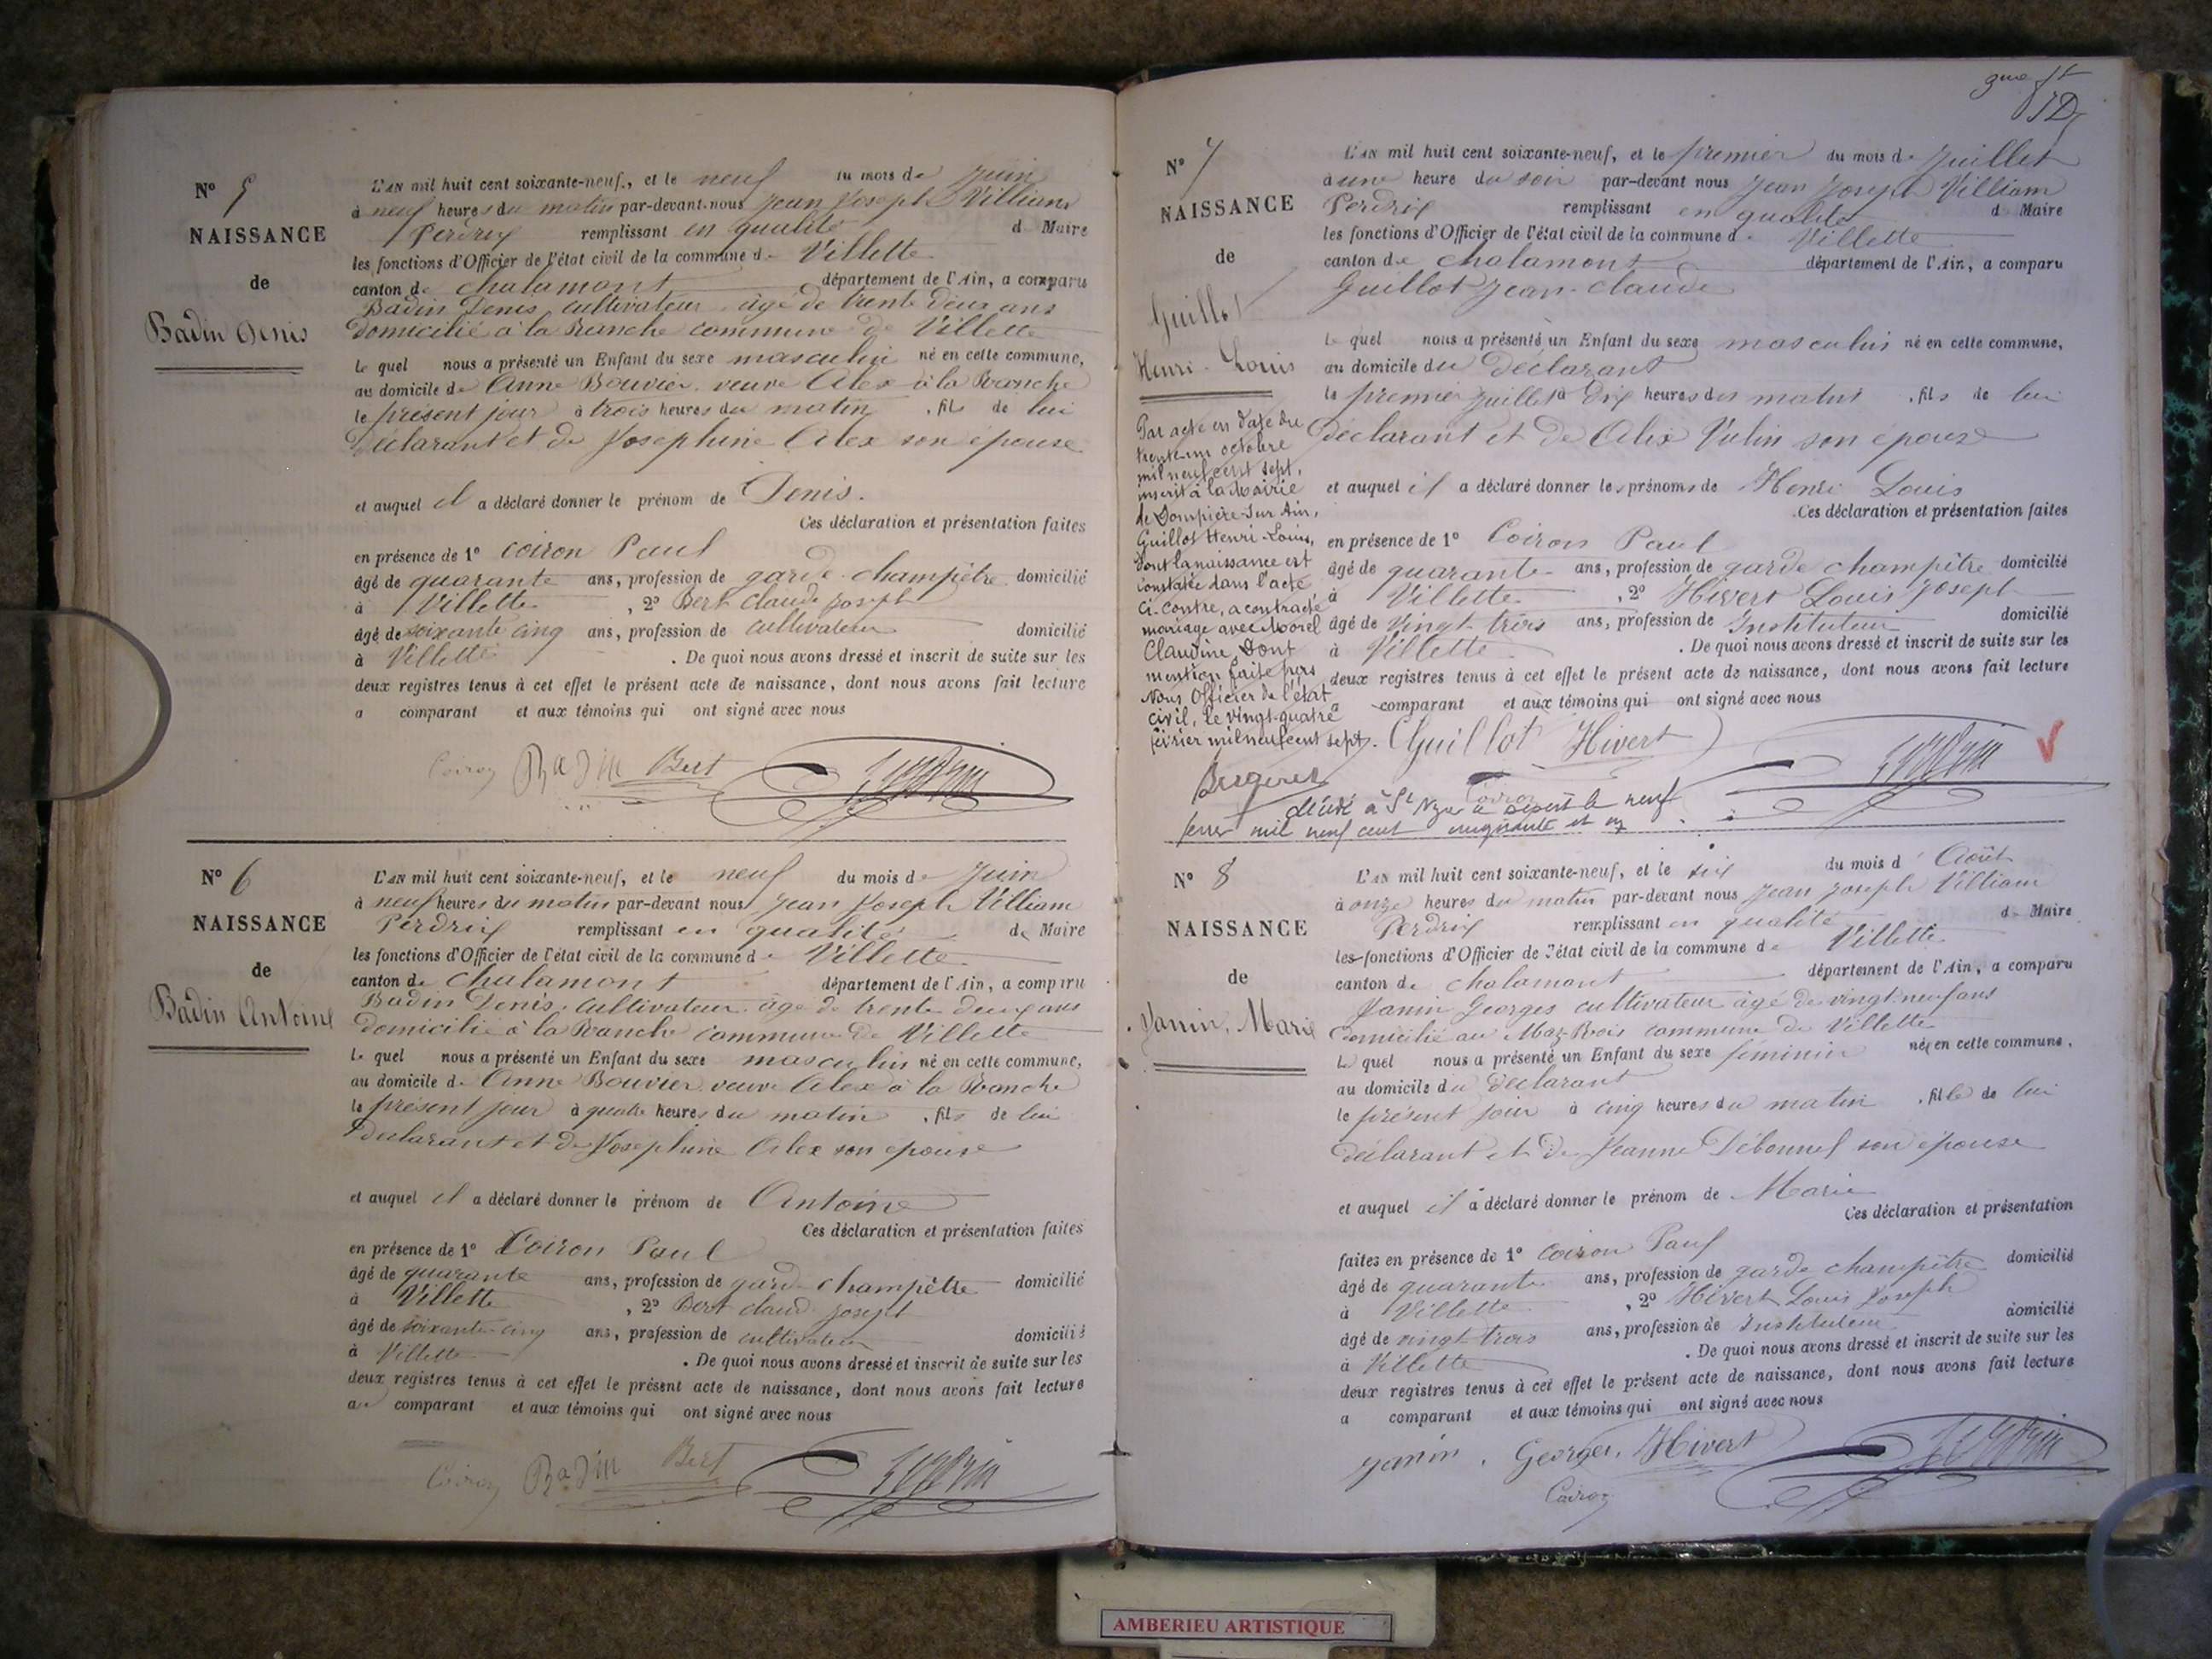 N° 5
NAISSANCE
de
Badin Denis
L'AN mil huit cent soixante-neuf, et le neuf du mois de Juin
à neuf heures du matin par-devant nous Jean Joseph Villiam
Perdrix remplissant en qualité d Maire
les fonctions d'Officier de l'état civil de la commune de Villette
canton de chalamont département de l'Ain, a comparu
Badin Denis, cultivateur âgé de trente deux ans
domicilié à la Ranche commune de Villette
Le quel nous a présenté un Enfant du sexe masculin né en cette commune,
au domicile de Anne Bouvier veuve Alex à la Ranche
le présent jour à trois heures du matin, fils de lui
déclarant et de Joséphine Alex son épouse
et auquel il a déclaré donner le prénom de Denis.
Ces déclaration et présentation faites
en présence de 1° Coiron Paul
âgé de quarante ans, profession de garde-champêtre domicilié
à Villette, 2° Bert Claude Joseph
âgé de soixante cinq ans, profession de cultivateur domicilié
à Villette. De quoi nous avons dressé et inscrit de suite sur les
deux registres tenus à cet effet le présent acte de naissance, dont nous avons fait lecture
a comparant et aux témoins qui ont signé avec nous
Coiron Badin Bert
N° 6
NAISSANCE
de
Badin Antoine
L'AN mil huit cent soixante-neuf, et le neuf du mois de Juin
à neuf heures du matin par-devant nous Jean Joseph Villiam
Perdrix remplissant en qualité de Maire
les fonctions d'Officier de l'état civil de la commune de Villette
canton de chalamont département de l'Ain, a comparu
Badin Denis, cultivateur âgé de trente deux ans
domicilié à la Ranche commune de Villette
Le quel nous a présenté un Enfant du sexe masculin né en cette commune,
au domicile de Anne Bouvier veuve Alex à la Ranche
le présent jour à quatre heures du matin, fils de lui
déclarant et de Joséphine Alex son épouse
et auquel il a déclaré donner le prénom de Antoine
Ces déclaration et présentation faites
en présence de 1° Coiron Paul
âgé de quarante ans, profession de garde champêtre domicilié
à Villette, 2° Bert claude Joseph
âgé de soixante-cinq ans, profession de cultivateur domicilié
à Villette. De quoi nous avons dressé et inscrit de suite sur les
deux registres tenus à cet effet le présent acte de naissance, dont nous avons fait lecture
au comparant et aux témoins qui ont signé avec nous
Coiron Badin Bert
3me
N° 7
NAISSANCE
de
Guillot
Henri-Louis
L'AN mil huit cent soixante-neuf, et le premier du mois de Juillet
à une heure du soir par-devant nous Jean Joseph Villiam
Perdrix remplissant en qualité d Maire
les fonctions d'Officier de l'état civil de la commune d Villette
canton de chalamont département de l'Ain, a comparu
Guillot Jean-Claude
Le quel nous a présenté un Enfant du sexe masculin né en cette commune,
au domicile du déclarant
le premier juillet à dix heures du matin, fils de lui
déclarant et de Alix Vulin son épouse
et auquel il a déclaré donner les prénoms de Henri Louis
Ces déclaration et présentation faites
en présence de 1° Coiron Paul
âgé de quarante ans, profession de garde champêtre domicilié
à Villette, 2° Hivert Louis Joseph
âgé de vingt trois ans, profession de Instituteur domicilié
à Villette. De quoi nous avons dressé et inscrit de suite sur les
deux registres tenus à cet effet le présent acte de naissance, dont nous avons fait lecture
a comparant et aux témoins qui ont signé avec nous
Guillot Hivert
Coiron
Par acte en date du
trente-un octobre
mil neuf cent sept,
inscrit à la Mairie
de Dompierre-sur-Ain,
Guillot Henri-Louis,
dont la naissance est
constatée dans l'acte
ci-contre, a contracté
mariage avec Morel
Claudine, Dont
mention faite par
Nous Officier de l'état
civil, le vingt-quatre
février mil neuf cent sept.
Bergeret
décédé à St le neuf
mil neuf cent cinquante et
N° 8
NAISSANCE
de
Janin, Marie
L'AN mil huit cent soixante-neuf, et le six du mois d Août
à onze heures du matin par-devant nous Jean Joseph Villiam
Perdrix remplissant en qualité d Maire
les fonctions d'Officier de l'état civil de la commune de Villette
canton de chalamont département de l'Ain, a comparu
Janin Georges cultivateur âgé de vingt neuf ans
domicilié au Maz-Bois commune de Villette
Le quel nous a présenté un Enfant du sexe féminin née en cette commune,
au domicile du déclarant
le présent jour à cinq heures du matin, fille de lui
déclarant et de Jeanne Débonnel son épouse
et auquel il a déclaré donner le prénom de Marie
Ces déclaration et présentation
faites en présence de 1° Coiron Paul
âgé de quarante ans, profession de garde champêtre domicilié
à Villette, 2° Hivert Louis Joseph
âgé de vingt trois ans, profession de Instituteur domicilié
à Villette. De quoi nous avons dressé et inscrit de suite sur les
deux registres tenus à cet effet le présent acte de naissance, dont nous avons fait lecture
a comparant et aux témoins qui ont signé avec nous
janin. Georges. Hivert
Coiron
AMBERIEU ARTISTIQUE